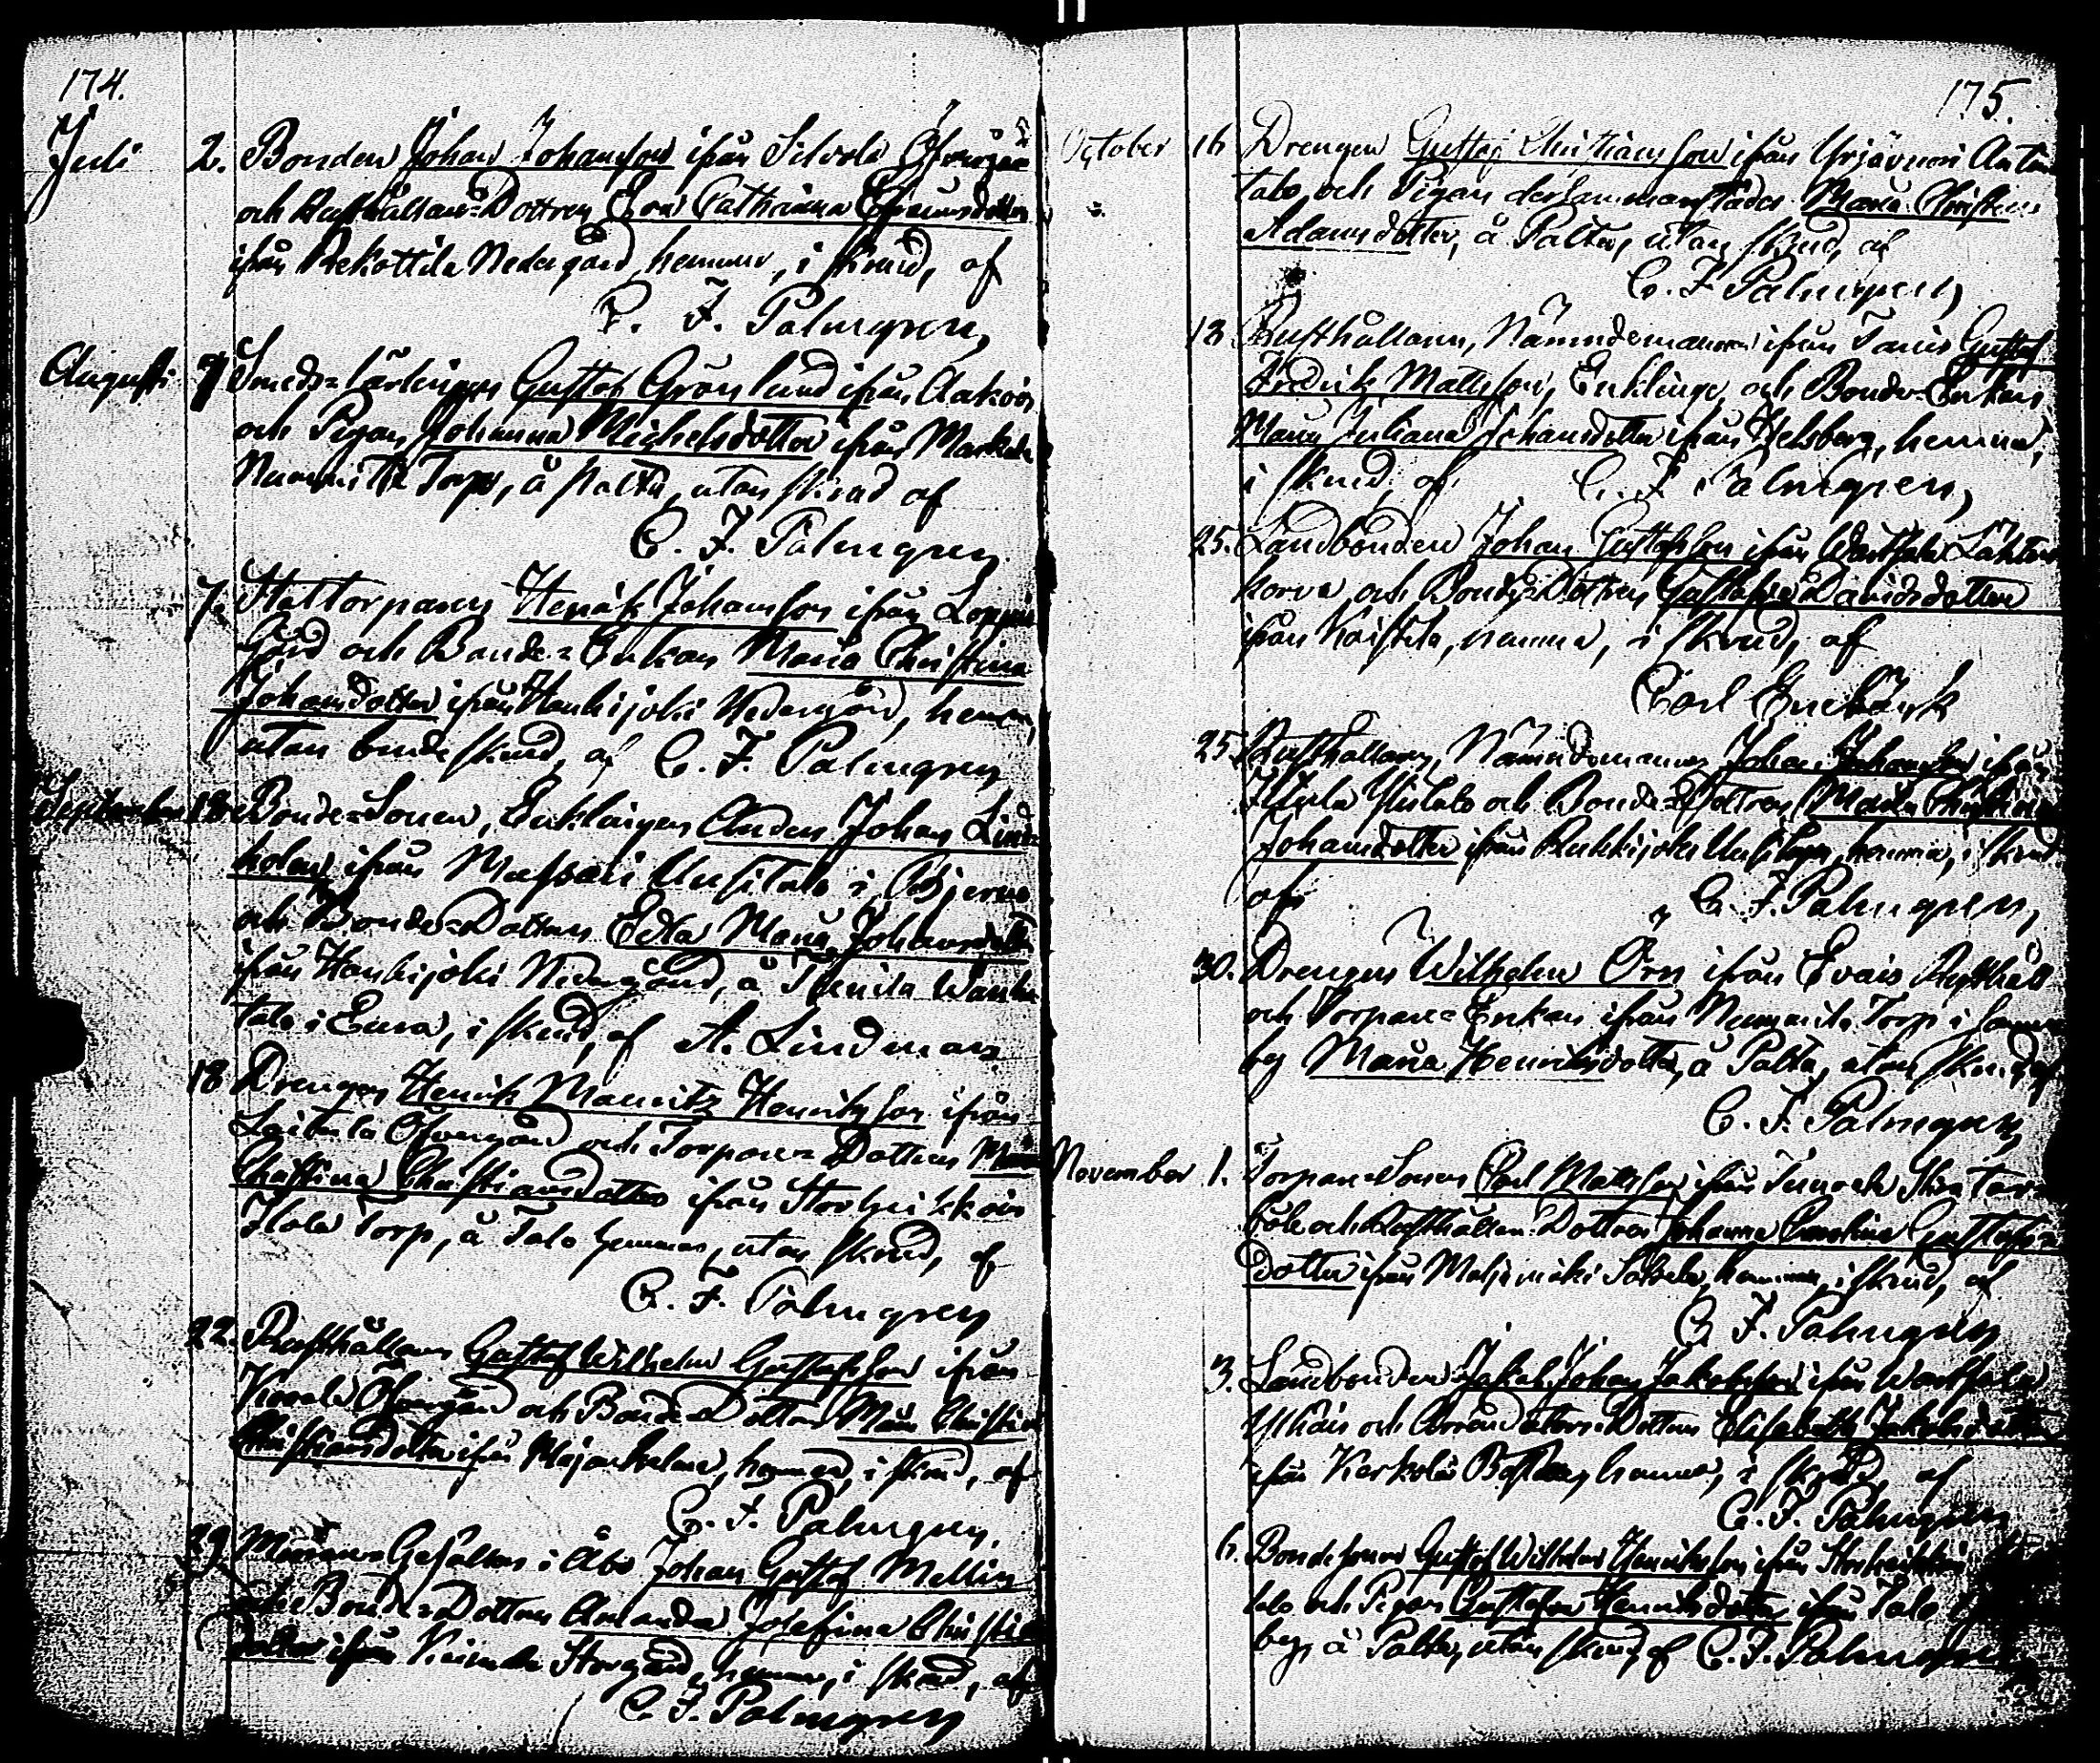 174.
Juli 2. Bonden Johan Johansson ifrån Silvola Öfvergård
och Rusthållare-Dottren Eva Catharina Efraimsdotter
ifrån Rekottila Nedergård, hemma, i skrud, af
C. F. Palmgren,
Augusti 7 Smeds-lärlingen Gustaf Grönlund ifrån
och Pigan Johanna Michelsdotter ifrån
Nummila Torp, å Palta, utan skrud af
C. F. Palmgren
7. Stattorparen Henrik Johansson ifrån
Gård och Bonde-Enkan Maria Christina
Johansdotter ifrån Hanhijoki Nedergård, hemma,
utan brudeskrud, af C. F. Palmgren
September 18 Bonde-Sonen, Enklingen Anders Johan Lind-
holm ifrån Uusitalo i Bjerno
och Bonde-Dottren Edla Maria Johansdotter
ifrån Hanhijoki Nedergård, å
talo i Eura, i skrud, af A. Lindman
18 Drengen Henrik Mauritz Henriksson ifrån
Laitila Öfvergård och Torpare-Dottren Maria
Christina Christiansdotter ifrån
Torp, å Talo hemma, utan skrud, af
C. F. Palmgren
22. Rusthållaren Gustaf Wilhelm Gustafsson ifrån
Öfvergård och Bonde-Dottren Maria Christina
Christiansdotter ifrån, hemma, i skrud, af
C. F. Palmgren,
29 i Åbo Johan Gustaf Mellin
och Bonde-Dottren Amanda Josefina
dotter ifrån Storgård, hemma, i skrud, af
C. F. Palmgren
175.
October 16 Drengen Gustaf Christiansson ifrån Yrjävuori
talo och Pigan dersammanstädes Maria Christina
Adamsdotter, å Palta, utan skrud, af
C. F. Palmgren,
18. Rusthållaren, Nämndemannen ifrån Gustaf
Fredrik Mattsson, Enklinge, och Bonde-Enkan
Maria Juliana Johansdotter ifrån Helsberg, hemma,
i skrud, af C. F. Palmgren,
25. Landbonden Johan Gustafsson ifrån
korva och Bonde-Dottren Gustafva Davidsdotter
ifrån Kaistila, hemma, i skrud, af
Carl Enebäck
25 Rusthållaren, Nämndemannen Johan Johansson ifrån
och Bonde-Dottren Maria Christina
Johansdotter ifrån, hemma, i skrud
af C. F. Palmgren,
30. Drengen Wilhelm Örn ifrån Evais Rusthåll
och Torpare-Enkan ifrån Nummila Torp i samma
by Maria Henriksdotter, å Palta, utan skrud, af
C. F. Palmgren
November 1. Torpare-Sonen Carl Mattsson ifrån
böle och Rusthållare-Dottren Johanna Carolina Gustafs-
dotter ifrån, hemma, i skrud, af
C. F. Palmgren
3. Landbonden Jakob Johan Jakobsson ifrån
och Arrendators-Dottren Elisabeth Jakobsdotter
ifrån Karkola, hemma, i skrud, af
C. F. Palmgren
6. Bondesonen Gustaf Wilhelm Henriksson ifrån
talo och Pigan Gustafva Henriksdotter ifrån Talo
by, å Palta, utan skrud, af C. F. Palmgren